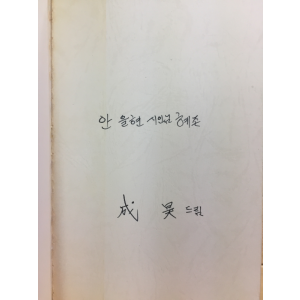 안 율현 시인님 혜존
成 昊 드림